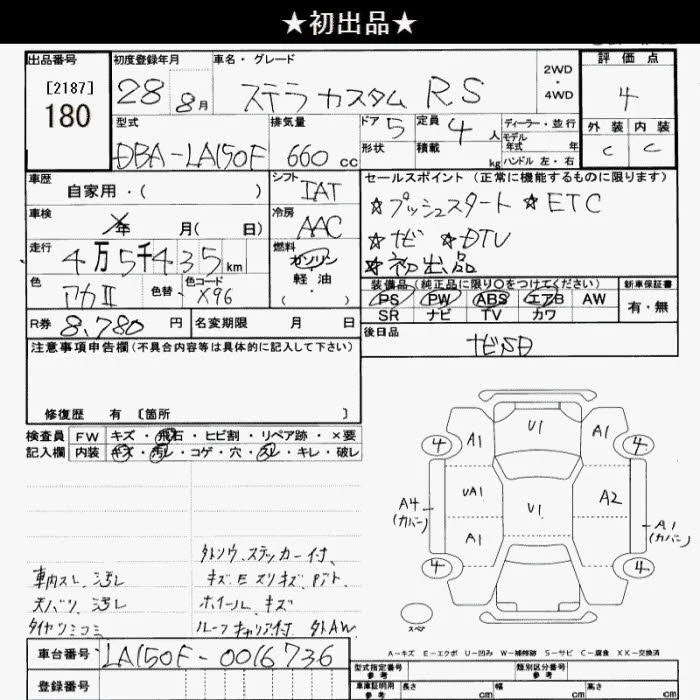 ★初出品★
出品番号
[2187]
180
初度登録年月
28年 8月
車名・グレード
ステラカスタム RS
2WD
・
4WD
評価点
4
型式
DBA-LA150F
排気量
660 cc
ドア 5
形状
定員 4 人
積載 kg
ディーラー・並行
モデル
年式 年
ハンドル 左・右
外装 内装
C C
車歴
自家用・( )
シフト
IAT
セールスポイント (正常に機能するものに限ります)
☆プッシュスタート ☆ETC
☆ナビ ☆DTV
☆初出品
車検
年 月( 日)
冷房
AAC
走行
4万5千435km
燃料
ガソリン
軽油
( )
色
アカII
色替
色コード
X96
装備品 (純正品に限り○をつけてください)
PS PW ABS エアB AW
SR ナビ TV カワ
新車保証書
有・無
R券 8,780 円
名変期限 月 日
後日品
ナビSD
注意事項申告欄(不具合内容等は具体的に記入して下さい)
修復歴 有 [箇所 ]
検査員
記入欄
FW キズ・飛石・ヒビ割・リペア跡・×要
内装 キズ・汚レ・コゲ・穴・スレ・キレ・破レ
車内スレ、汚レ
天バリ、汚レ
タイヤツミコミ
外ソウ、ステッカー付、
キズ、E、スリキズ、Pヅト
ホイール、キズ
ルーフキャリア付 外AW
U1
A1
A1
4
4
UA1
U1
A2
A1
A4
(カバー)
A1
(カバー)
4
4
スペア
A-キズ E-エクボ U-凹み W-補修跡 S-サビ C-腐食 XX-交換済
車台番号
LA150F-0016736
登録番号
型式指定番号
参考
類別区分番号
参考
車庫証明用
参考
長さ cm
幅 cm
高さ cm